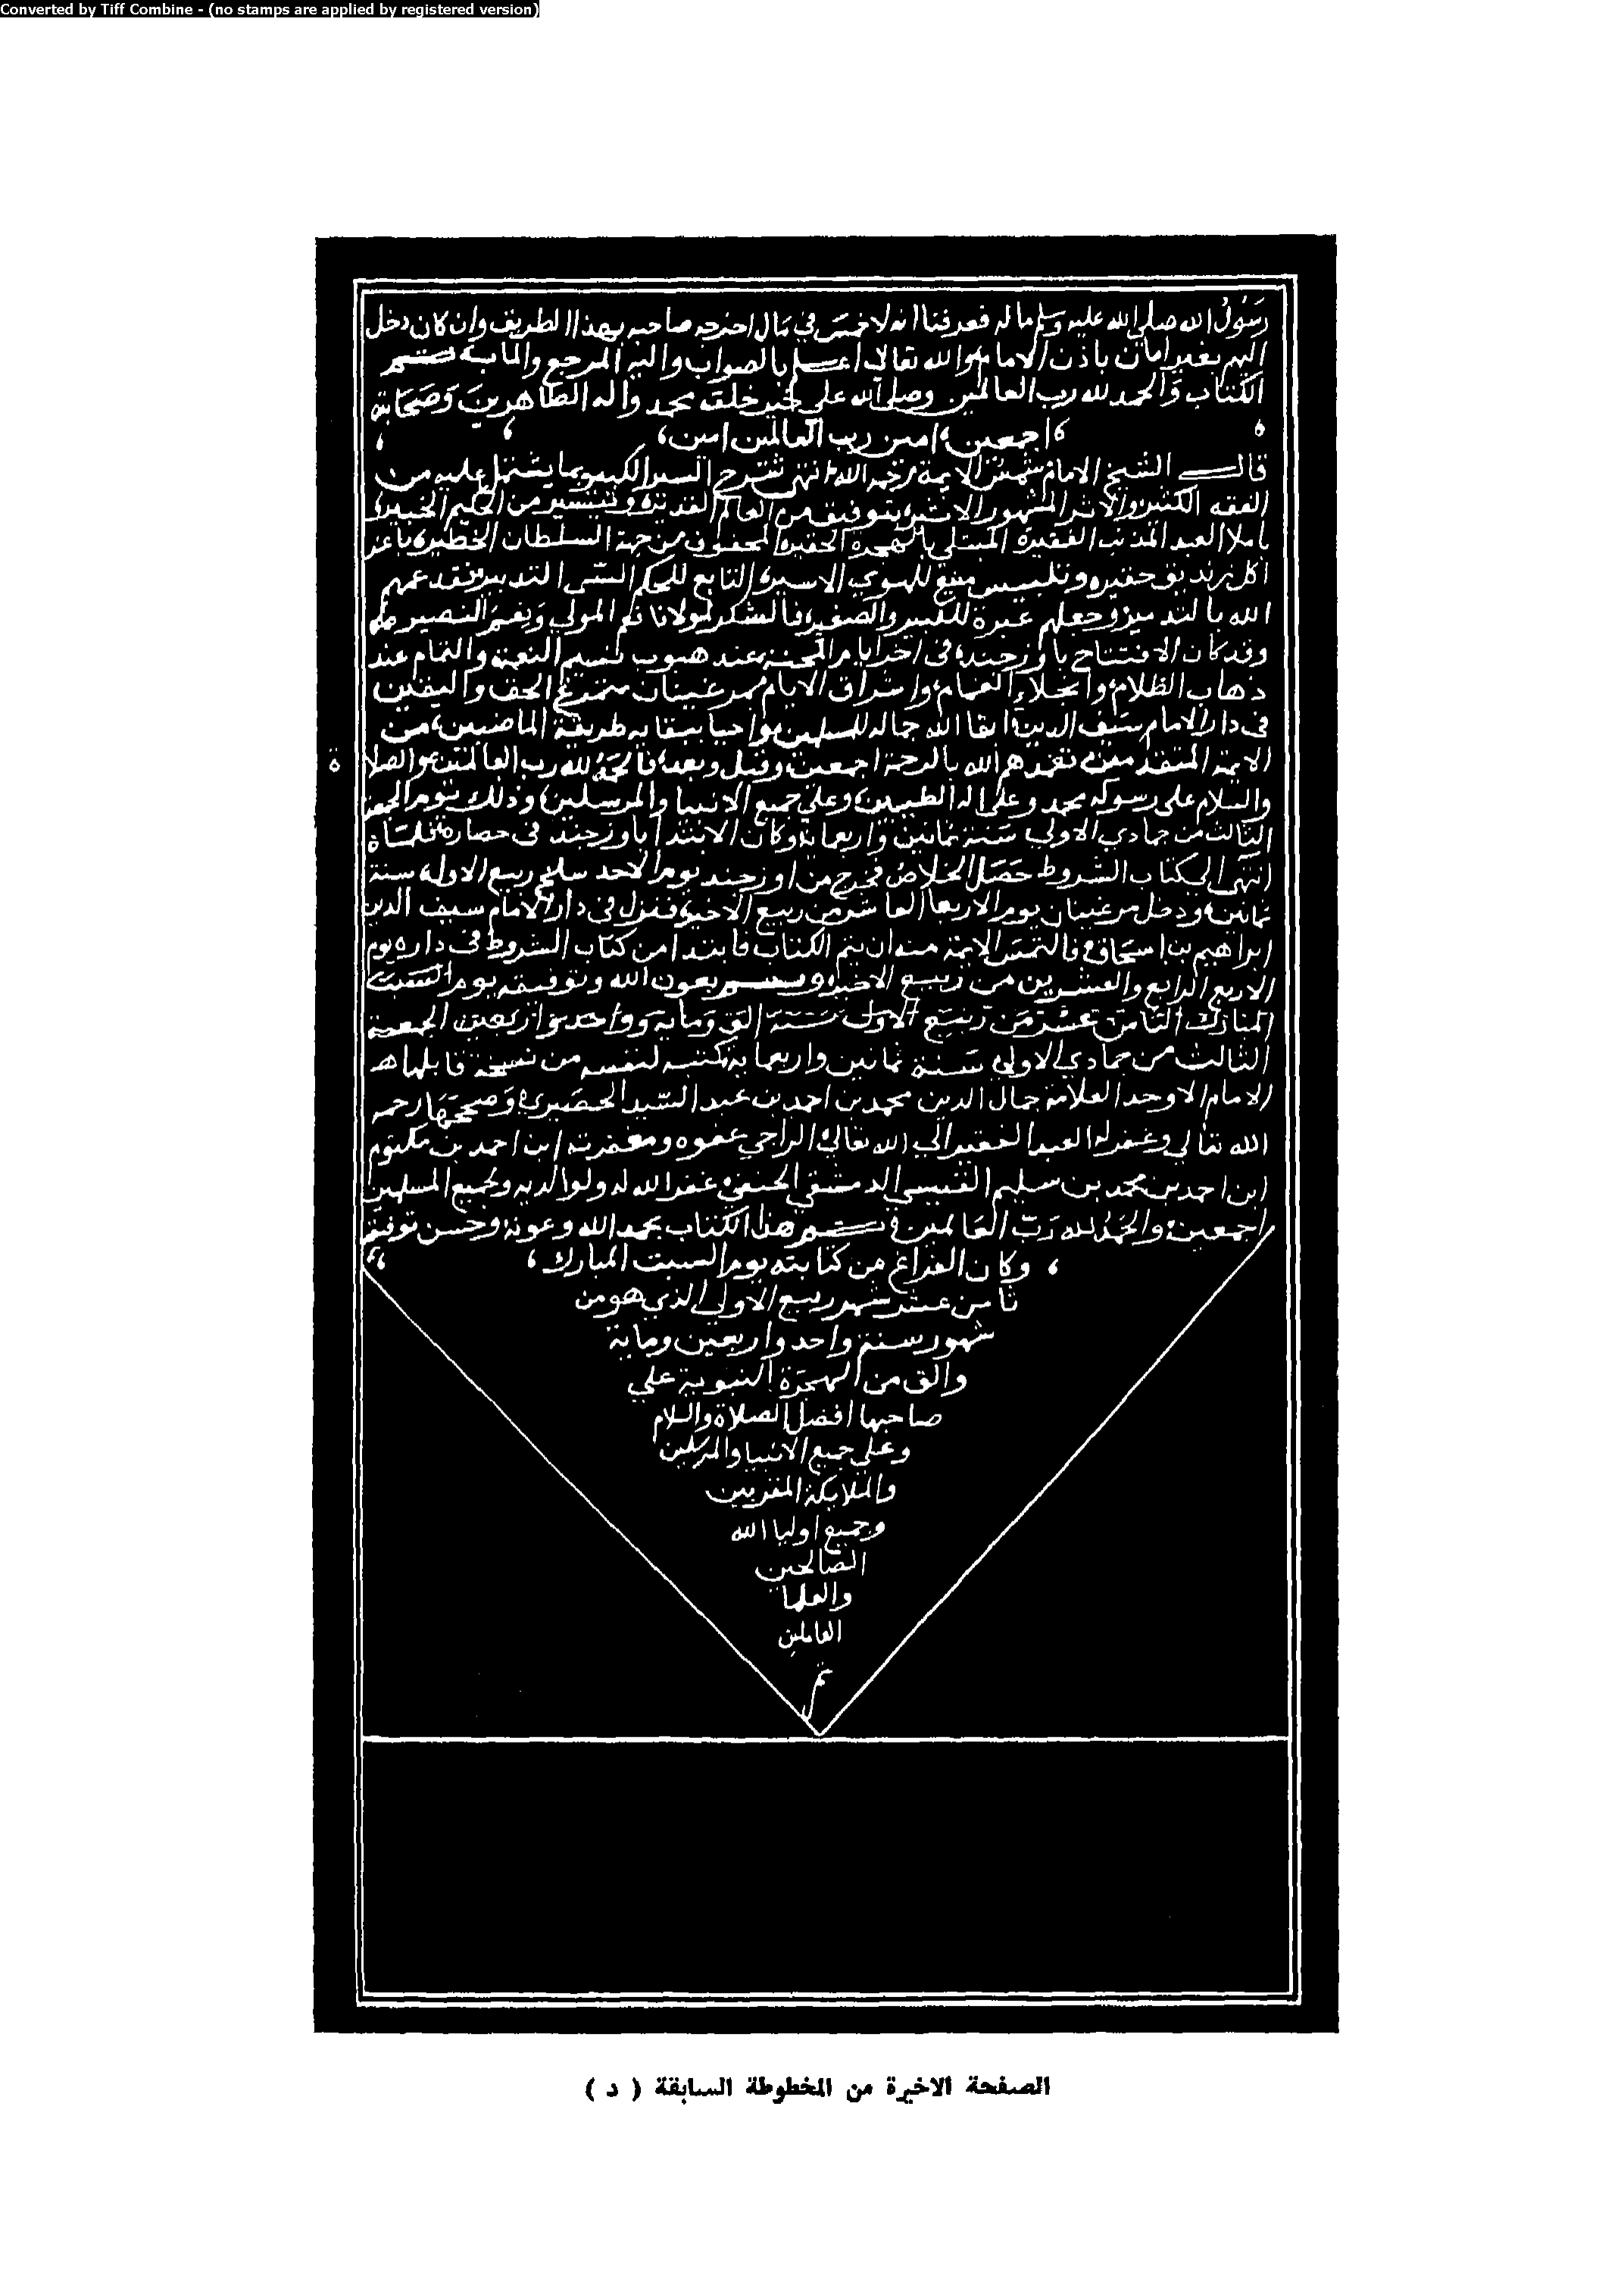 Converted by Tiff Combine - (no stamps are applied by registered version)
رسول الله صلى الله عليه وسلم ماله فعرفنا انه لا خمس في مال اخرجه صاحبه بهذا الطريق وان كان دخل
اليهم بغير امان باذن الامام والله تعالى اعلم بالصواب واليه المرجع والماب تم
الكتاب والحمد لله رب العالمين وصلى الله على خير خلقه محمد واله الطاهرين وصحابته
اجمعين امين رب العالمين امين
قال الشيخ الامام شمس الايمة رحمه الله انتهى شرح السير الكبير بما يشتمل عليه من
الفقه الكثير والاثر المشهور بتوفيق من العالم القدير وتيسير من الحكيم الخبير
باملا العبد المذنب الفقير المبتلى بالهجرة الحقير المجفو من جهة السلطان الخطير باغر
اكل زنديق حقير وتلبيس للهوى الاسير التابع للحكم التدبير عمهم
الله بالتدمير وجعلهم عبرة للكبير والصغير فالشكر لمولانا نعم المولى ونعم النصير
وقد كان الافتتاح باوزجند في اخر ايام المحنة عند هبوب نسيم النعمة والتمام عند
ذهاب الظلام وانجلاء الغمام واشراق الايام بمرغينان الحق واليقين
في دار الامام سيف الدين ابقا الله جماله للمسلمين واحيا ببقايه طريقة الماضيين من
الايمة المتقدمين تغمدهم الله بالرحمة اجمعين وقبل وبعد فالحمد لله رب العالمين والصلاة
والسلام على رسوله محمد وعلى اله الطيبين وعلى جميع الانبيا والمرسلين وذلك يوم الجمعة
الثالث من جمادي الاولى سنة ثمانين واربعماية وكان الابتدا باوزجند في حصاره
انتهى الى كتاب الشروط حصل الخلاص فخرج من اوزجند يوم الاحد سلخ ربيع الاول سنة
ثمانين ودخل مرغينان يوم الاربعا العاشر من ربيع الاخير فنزل في دار الامام سيف الدين
ابراهيم بن اسحاق فالتمس الايمة منه ان يتم الكتاب فابتدا من كتاب الشروط في داره يوم
الاربع الرابع والعشرين من ربيع الاخير وتم بعون الله وتوفيقه يوم السبت
المبارك الثامن عشر من ربيع الاول سنة الق وماية وواحد واربعين الجمعة
الثالث من جمادي الاولى سنة ثمانين واربعماية كتبه لنفسه من نسخة قابلها
الامام الاوحد العلامة جمال الدين محمد بن احمد بن عبد السيد الحصيري وصححها رحمه
الله تعالى وغفر له العبد الفقير الى الله تعالى الراجي عفوه ومغفرته ابن احمد بن مكتوم
ابن احمد بن محمد بن سليم القيسي الدمشقي الحنفي غفر الله له ولوالديه ولجميع المسلمين
اجمعين والحمد لله رب العالمين تم هذا الكتاب بحمد الله وعونه وحسن توفيقه
وكان الفراغ من كتابته يوم السبت المبارك
ثامن عشر شهر ربيع الاول الذي هو من
شهور سنة واحد واربعين وماية
والق من الهجرة النبوية علي
صاحبها افضل الصلاة والسلام
وعلى جميع الانبيا والمرسلين
والملايكة المقربين
وجميع اوليا الله
الصالحين
والعلما
العاملين
تم
الصفحة الاخيرة من المخطوطة السابقة ( د )